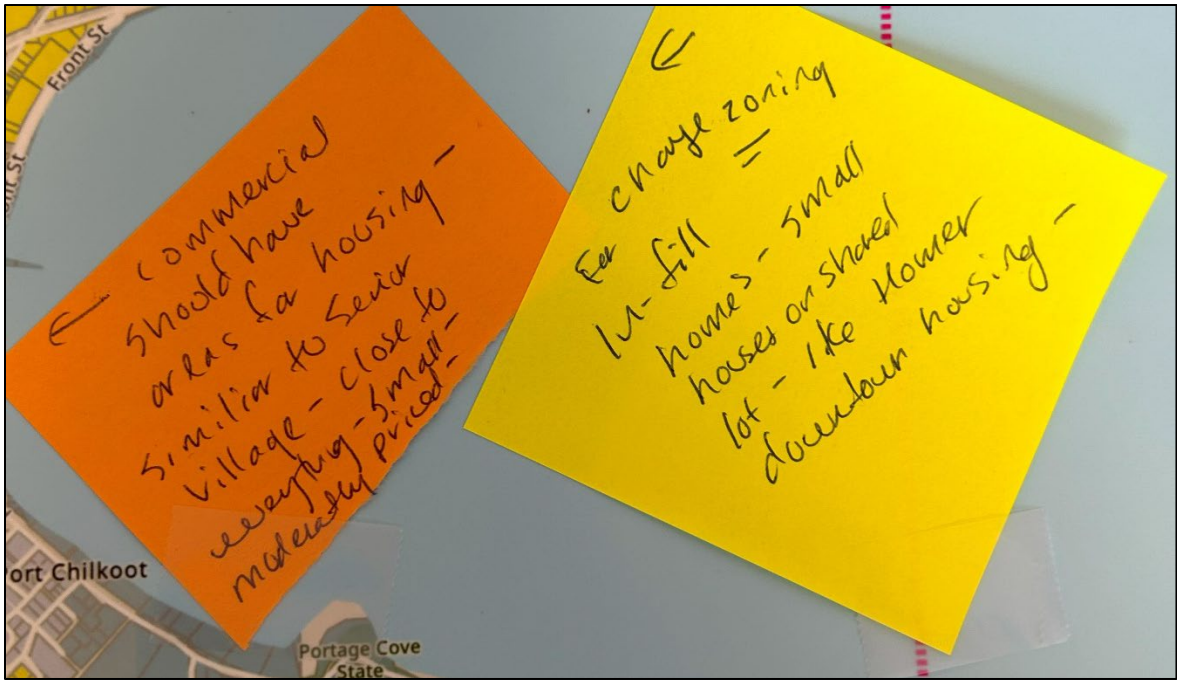 Front St
← commercial
should have
areas for housing -
similir to Senior
village - close to
everything - small -
moderatly priced -
← change zoning
For
In-fill
homes - small
houses on shared
lot - like Homer
downtown housing -
ort Chilkoot
Portage Cove
State